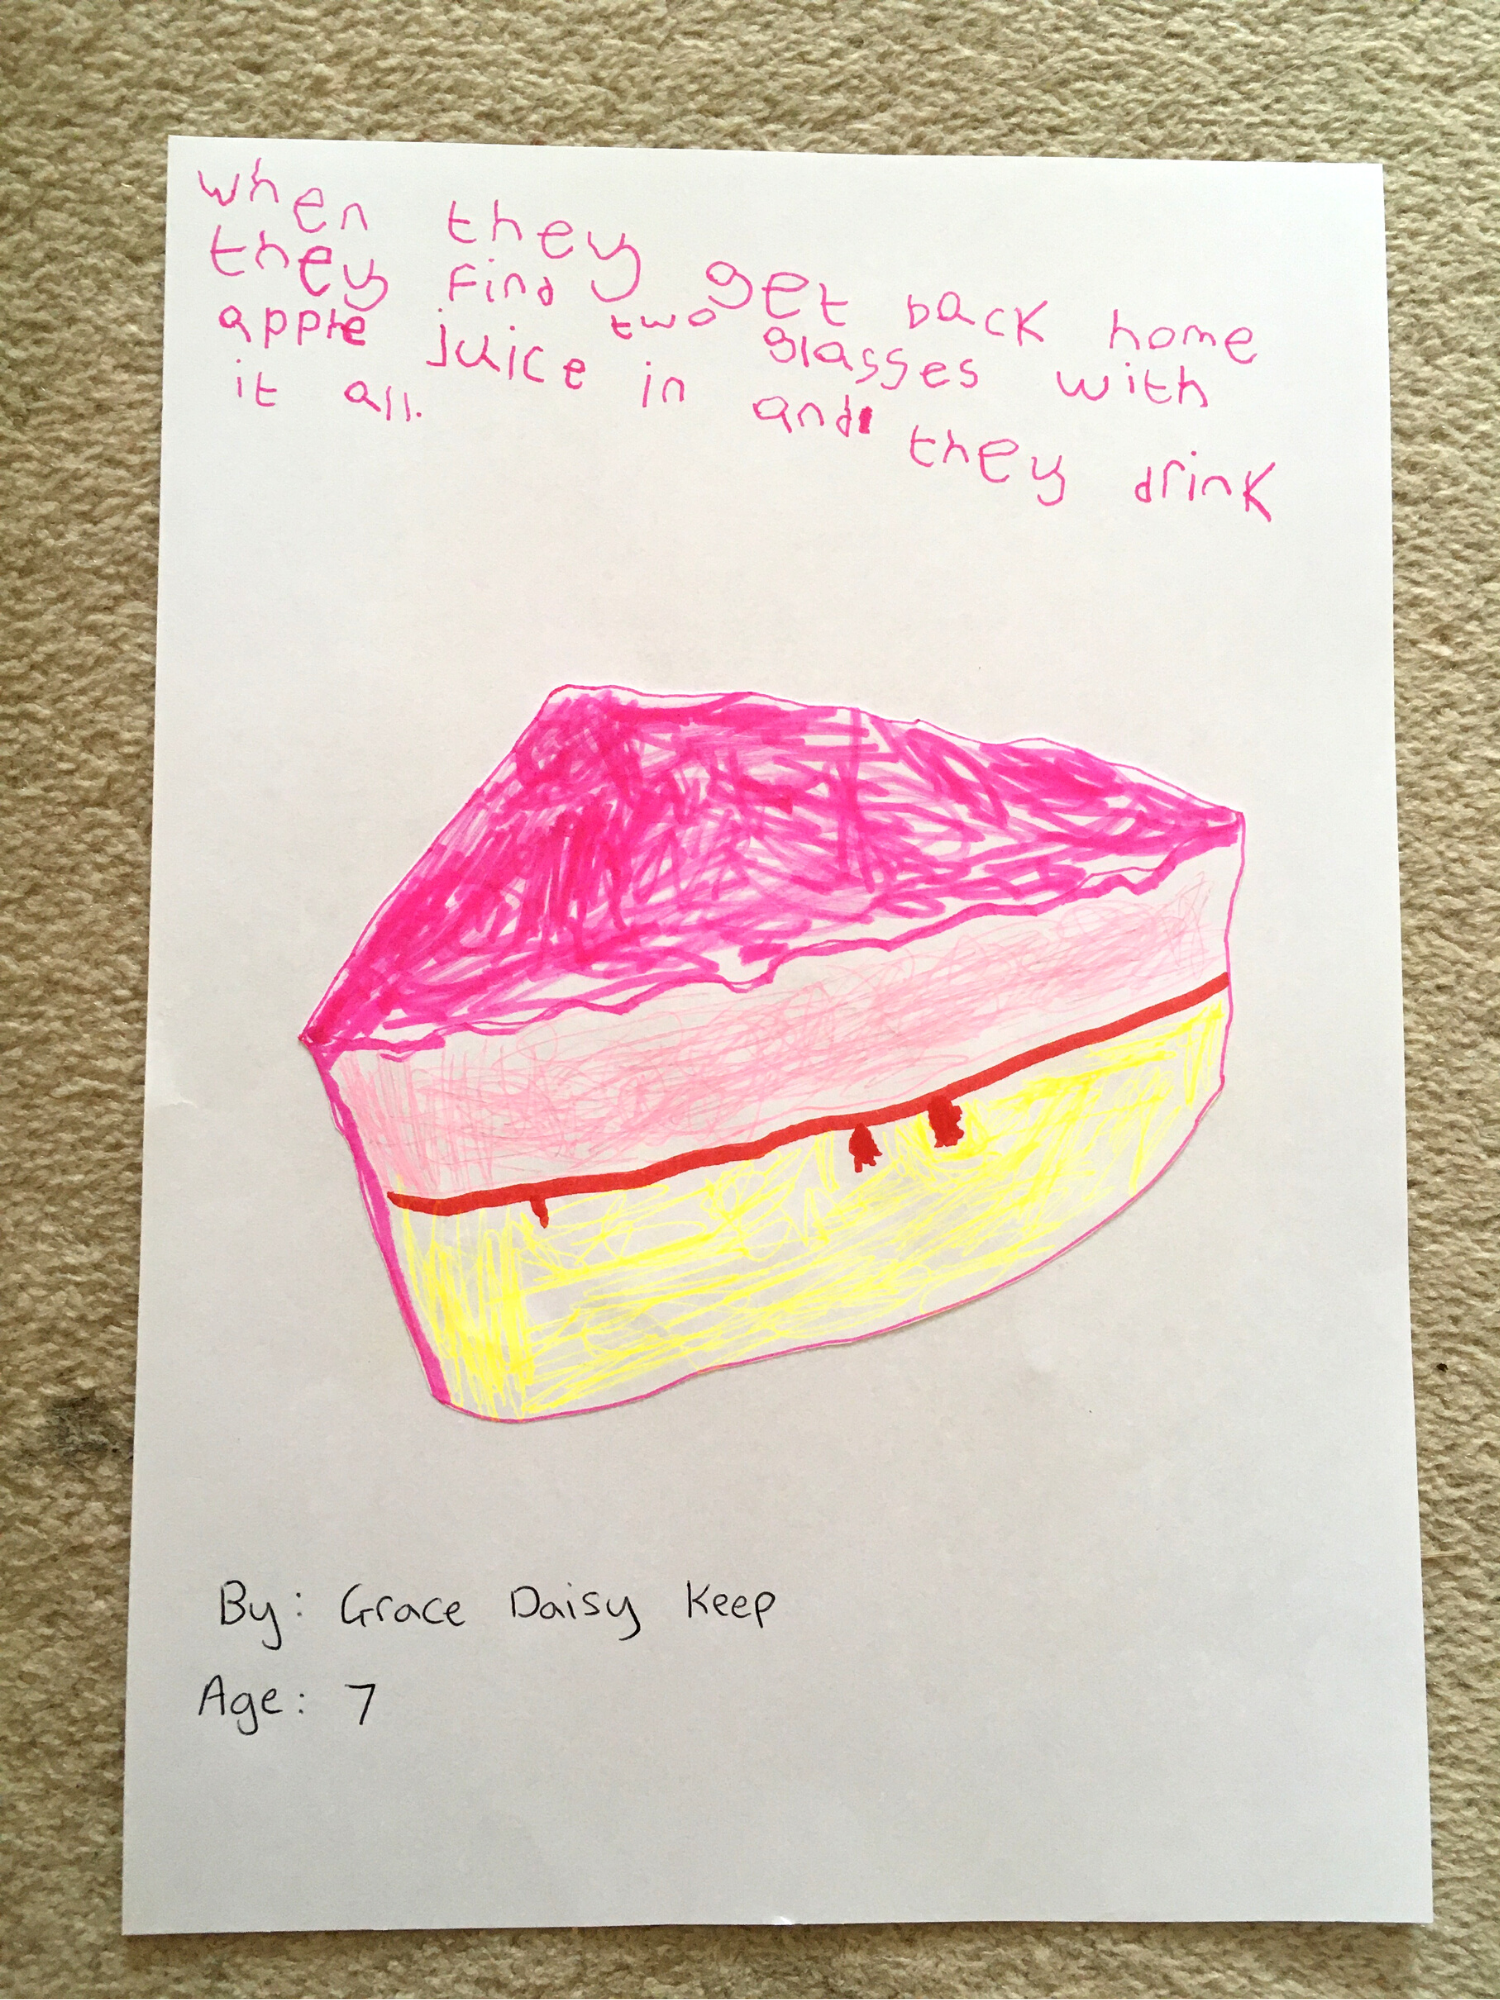 when they get back home
they find two glasses with
apple juice in and they drink
it all.
By: Grace Daisy Keep
Age: 7